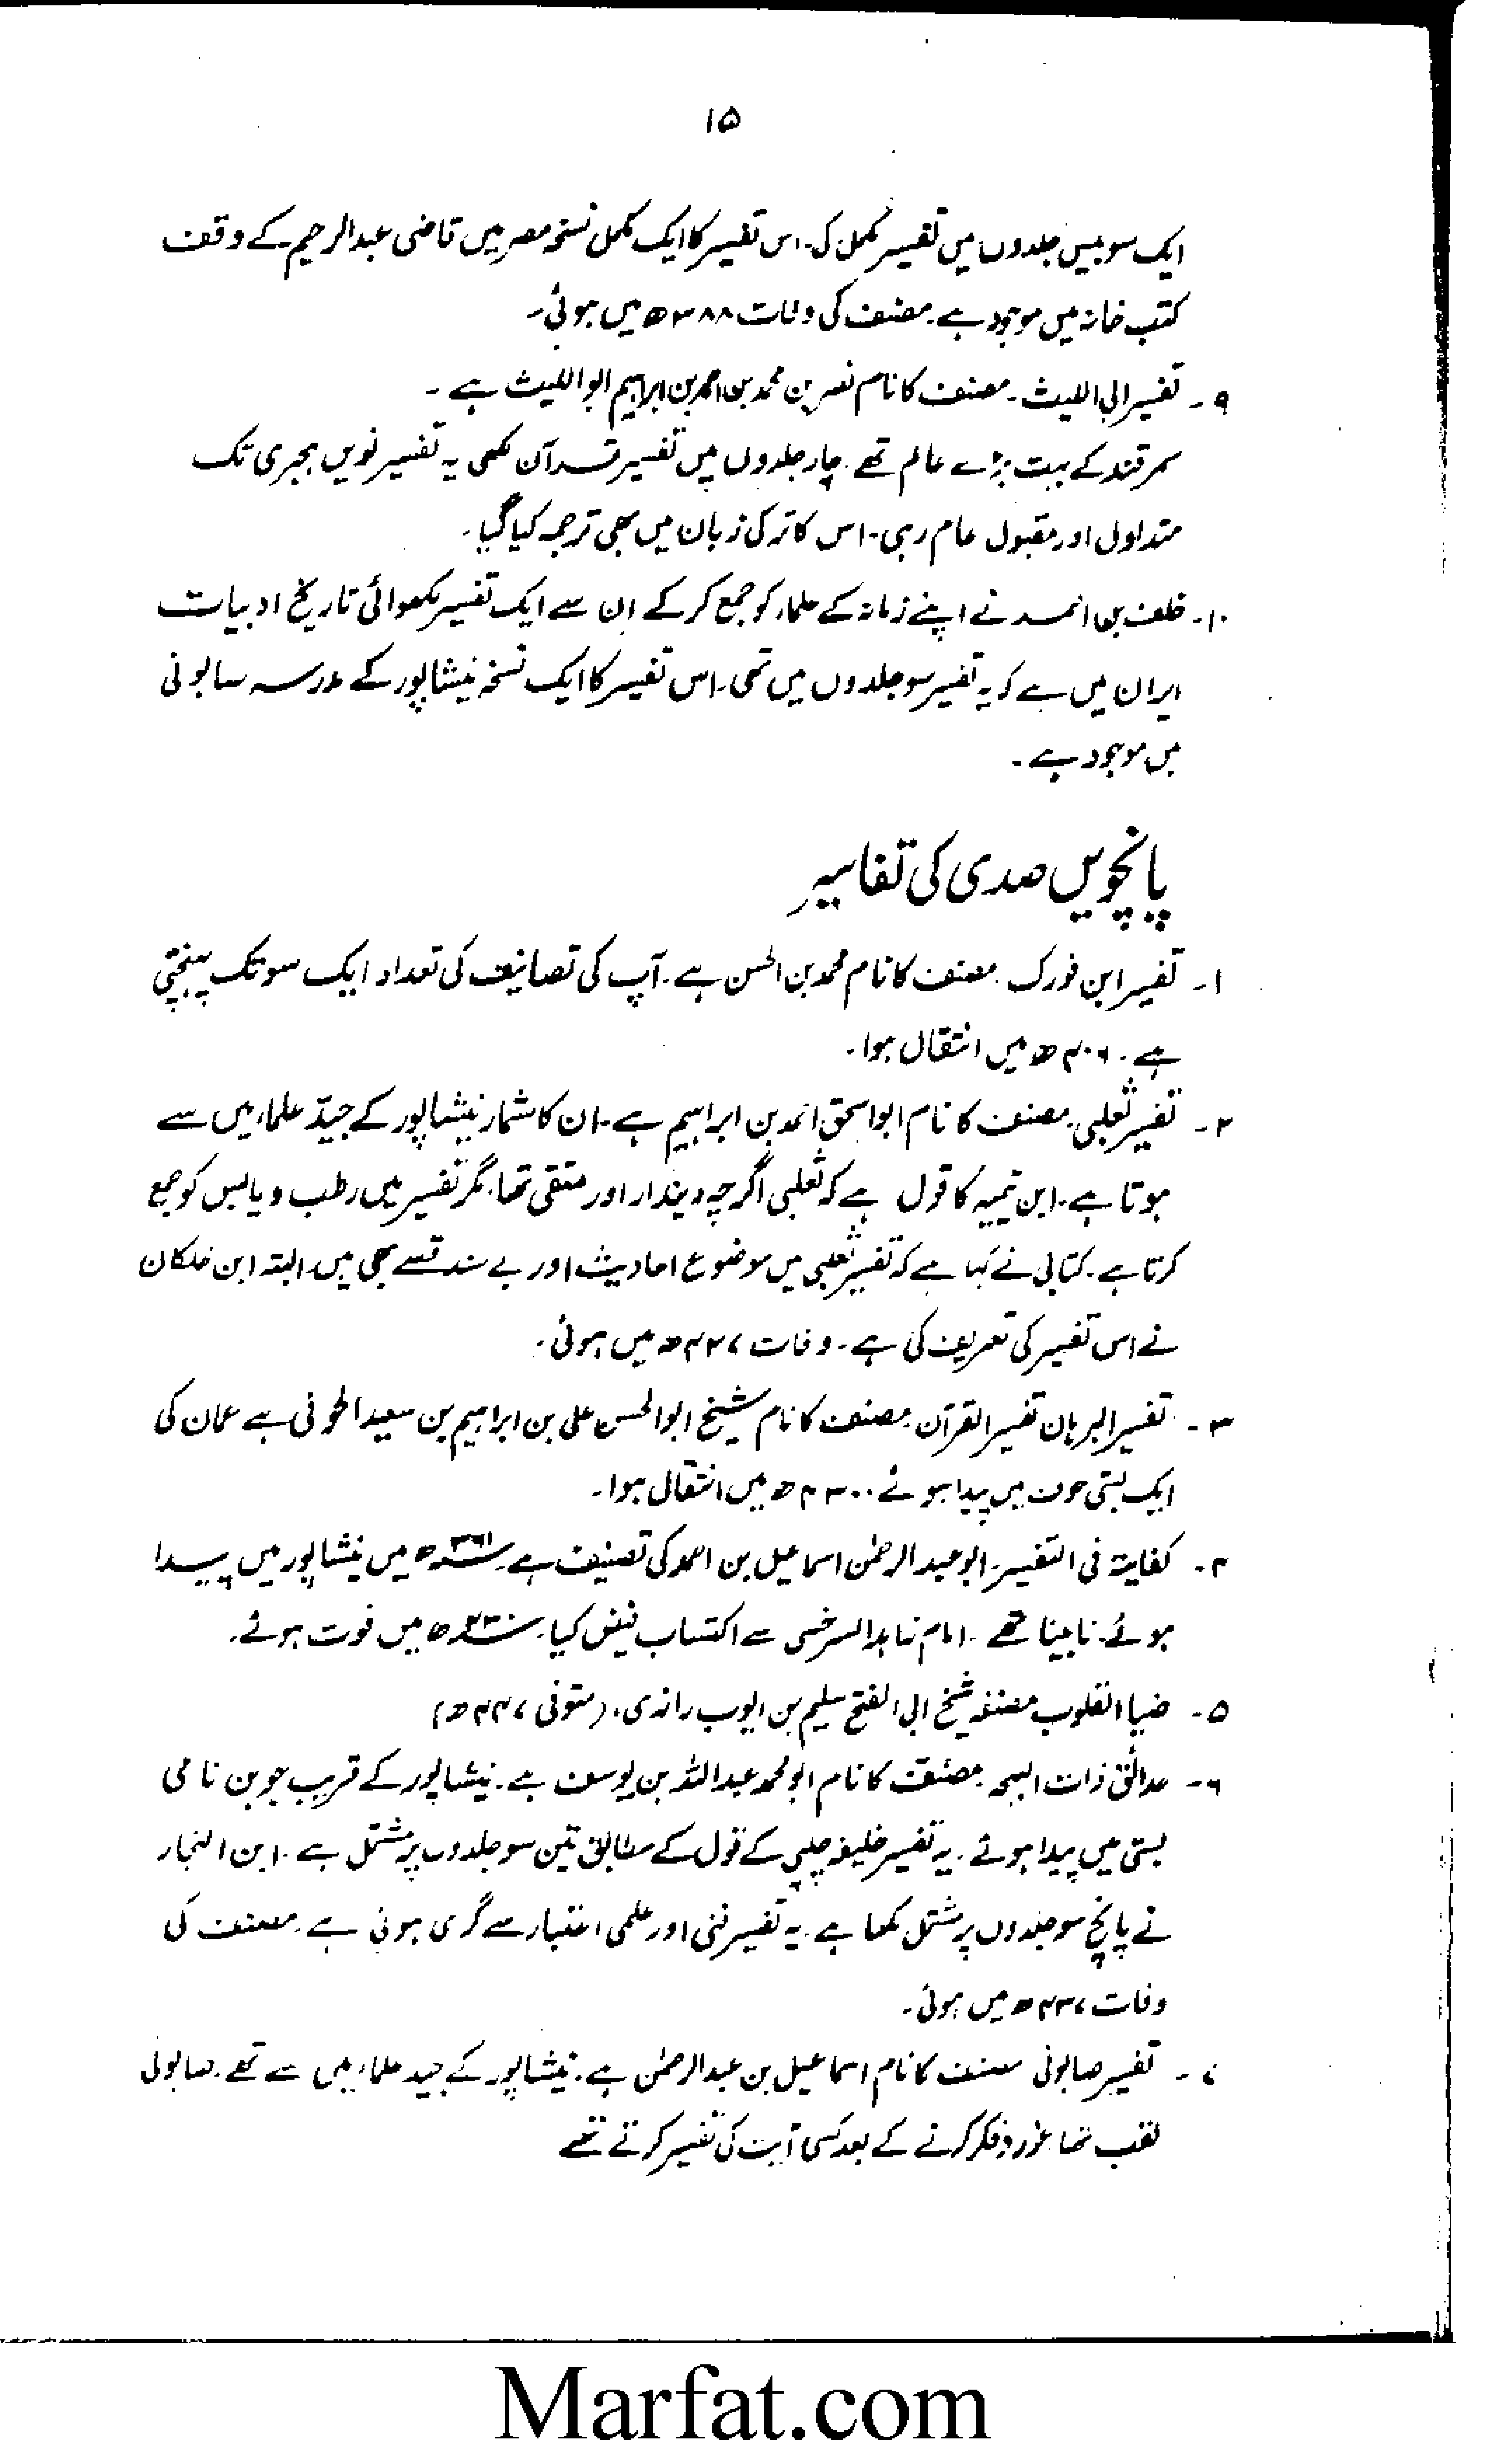 ۱۵
ایک سو بیس جلدوں میں تفسیر مکمل کی۔ اس تفسیر کا ایک مکمل نسخہ مصر میں قاضی عبدالرحیم کے وقف
کتب خانہ میں موجود ہے۔ مصنف کی وفات ۳۸۸ھ میں ہوئی۔
۹۔ تفسیر ابی اللیث۔ مصنف کا نام نصر بن محمد بن احمد بن ابراہیم ابو اللیث ہے۔
سمرقند کے بہت بڑے عالم تھے۔ چار جلدوں میں تفسیر قرآن لکھی یہ تفسیر نویں ہجری تک
متداول اور مقبول عام رہی۔ اس کا ترکی زبان میں بھی ترجمہ کیا گیا۔
۱۰۔ خلف بن احمد نے اپنے زمانہ کے علماء کو جمع کر کے ان سے ایک تفسیر لکھوائی تاریخ ادبیات
ایران میں ہے کہ یہ تفسیر سو جلدوں میں تھی۔ اس تفسیر کا ایک نسخہ نیشاپور کے مدرسہ سابونی
میں موجود ہے۔
پانچویں صدی کی تفاسیر
۱۔ تفسیر ابن فورک۔ مصنف کا نام محمد بن الحسن ہے۔ آپ کی تصانیف کی تعداد ایک سو تک پہنچتی
ہے۔ ۴۰۶ھ میں انتقال ہوا۔
۲۔ تفسیر ثعلبی۔ مصنف کا نام ابو اسحٰق احمد بن ابراہیم ہے۔ ان کا شمار نیشاپور کے جیّد علماء میں سے
ہوتا ہے۔ ابن تیمیہ کا قول ہے کہ ثعلبی اگرچہ دیندار اور متقی تھا۔ مگر تفسیر میں رطب و یابس کو جمع
کرتا ہے۔ کتانی نے کہا ہے کہ تفسیر ثعلبی میں موضوع احادیث اور بے سند قصے بھی ہیں۔ البتہ ابن خلکان
نے اس تفسیر کی تعریف کی ہے۔ وفات ۴۲۷ھ میں ہوئی۔
۳۔ تفسیر البرہان تفسیر القرآن۔ مصنف کا نام شیخ ابوالحسن علی بن ابراہیم بن سعید الحوفی ہے عمان کی
ایک بستی حوف میں پیدا ہوئے۔ ۴۳۰ھ میں انتقال ہوا۔
۴۔ کفایۃ فی التفسیر۔ ابو عبدالرحمٰن اسماعیل بن احمد کی تصنیف ہے ۳۶۱ھ میں نیشاپور میں پیدا
ہوئے۔ نابینا تھے۔ امام زاہد السرخسی سے اکتساب فیض کیا۔ ۴۳۰ھ میں فوت ہوئے۔
۵۔ ضیاالقلوب مصنفہ شیخ ابی الفتح سلیم بن ایوب رازی۔ (متوفی ۴۴۷ھ)
۶۔ حدائق ذات البہجہ۔ مصنف کا نام ابو محمد عبداللہ بن یوسف ہے۔ نیشاپور کے قریب جوین نامی
بستی میں پیدا ہوئے۔ یہ تفسیر خلیفہ چلپی کے قول کے مطابق تین سو جلدوں پر مشتمل ہے۔ ابن النجار
نے پانچ سو جلدوں پر مشتمل لکھا ہے۔ یہ تفسیر فنی اور علمی اعتبار سے گری ہوئی ہے۔ مصنف کی
وفات ۴۳۷ھ میں ہوئی۔
۷۔ تفسیر صابونی مصنف کا نام اسماعیل بن عبدالرحمٰن ہے۔ نیشاپور کے جید علماء میں سے تھے۔ صابونی
لقب تھا غور و فکر کرنے کے بعد کسی آیت کی تفسیر کرتے تھے
Marfat.com